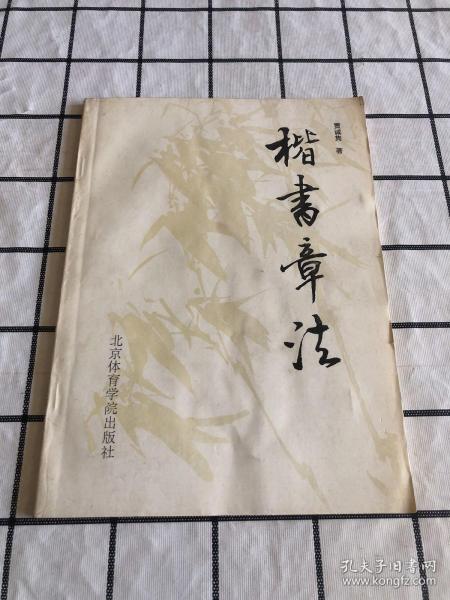 楷书章法
贾诚隽 著
北京体育学院出版社
孔夫子旧书网
www.kongfz.com